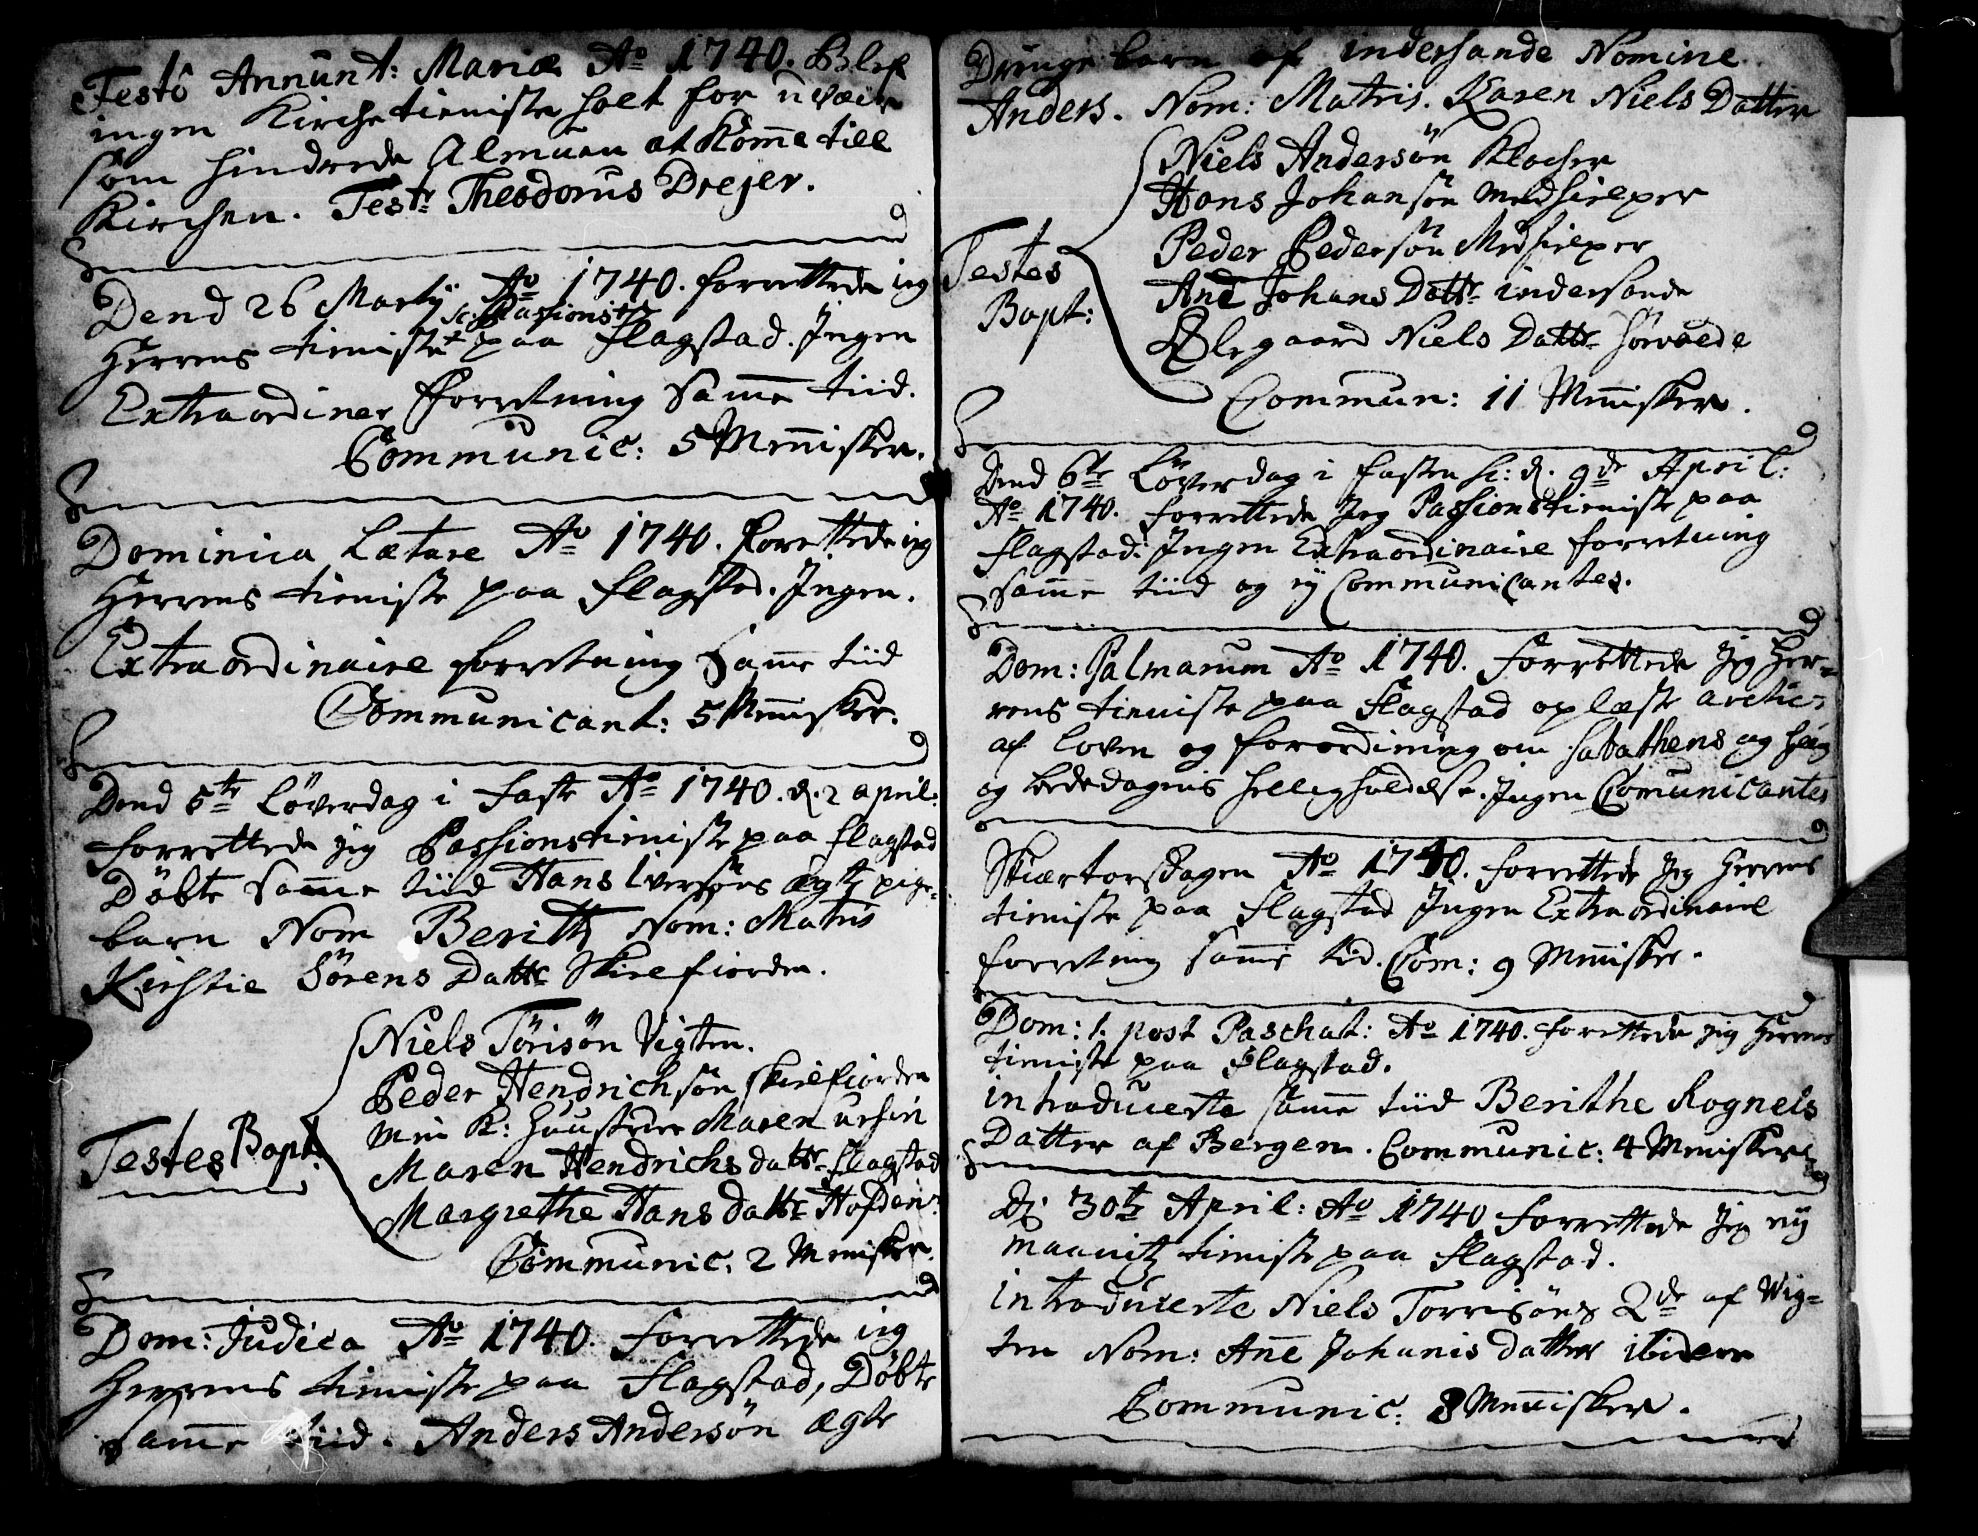 Festô Annunt: Mariæ Aº 1740. Blef
ingen Kirche tieniste holt for uvæir
som hindrede Almuen at Komme till
Kirchen. Test: Theodorus Drejer.
Dend 26 Martij Aº 1740. forrettede ieg
Sc: Passions
Herrens tieniste paa Flagstad. Ingen
Extraordiner Forretning Samme tiid.
Communic: 5 Mennisker.
Dominica Lætare Aº 1740. Forrettede ieg
Herrens tieniste paa Flagstad. Ingen.
Extraordinaire forretning Samme tiid
Communicant: 5 Mennisker.
Dend 5te Löverdag i Faste Aº 1740. d. 2 april:
forrettede jeg Passionstieniste paa Flagstad
Döbte Samme tiid Hans Iversöns ægte pige-
barn Nom Berith Nom: Matris
Kirstie Sörens Datter Skirefiorden.
Niels Törisön Vigten.
Peder Hendrichsön Skirefiorden
Min K: Huustrue Maren Ursin
Maren Hendrichs datter Flagstad
Margrethe Hans datter Hofden:
Testes Bapt:
Communic: 2 Mennisker.
Dom: Judica Aº 1740. forrettede ieg
Herrens tieniste paa Flagstad, Döbte
samme tiid. Anders Andersön ægte
Drenge barn af indersande Nomine.
Anders. Nom: Matris. Karen Niels Datter
Niels Andersön Klocher
Hans Johansön Medhielper
Peder Pedersön Medhielper
Ane Johans Datter indersande
Ölegaard Niels Datter Sörvaede
Testes
Bapt:
Commun: 11 Mennisker.
Dend 6te Löverdag i fasten sc: d. 9de April:
Aº 1740. forrettede Jeg Passionstieniste paa
Flagstad: Ingen Extraordinaire forretning
samme tiid og ej Communicantes.
Dom: Palmarum Aº 1740. Forrettede Jeg Her-
rens tieniste paa Flagstad oplæste artic:
af loven og forordining om Sabathens og
og bededagens helligholdelse. Ingen Comunicantes
Skiærtorsdagen Aº 1740. forrettede Jeg Herrens
tieniste paa Flagstad Ingen Extraordinaire
forretning samme tid. Com: 9 Mennisker.
Dom: 1. post Paschat: Aº 1740. forrettede jeg Herrens
tieniste paa Flagstad.
introducerte samme tiid Berithe Rognels
Datter af Bergen. Communic: 4 Mennisker
D. 30te April: Aº 1740 forrettede Jeg nÿ
maanitz tieniste paa Flagstad.
introducerte Niels Torrisöns Qde af Wig-
ten Nom: Ane Johanis datter ibidem
Communic: 8 Mennisker.